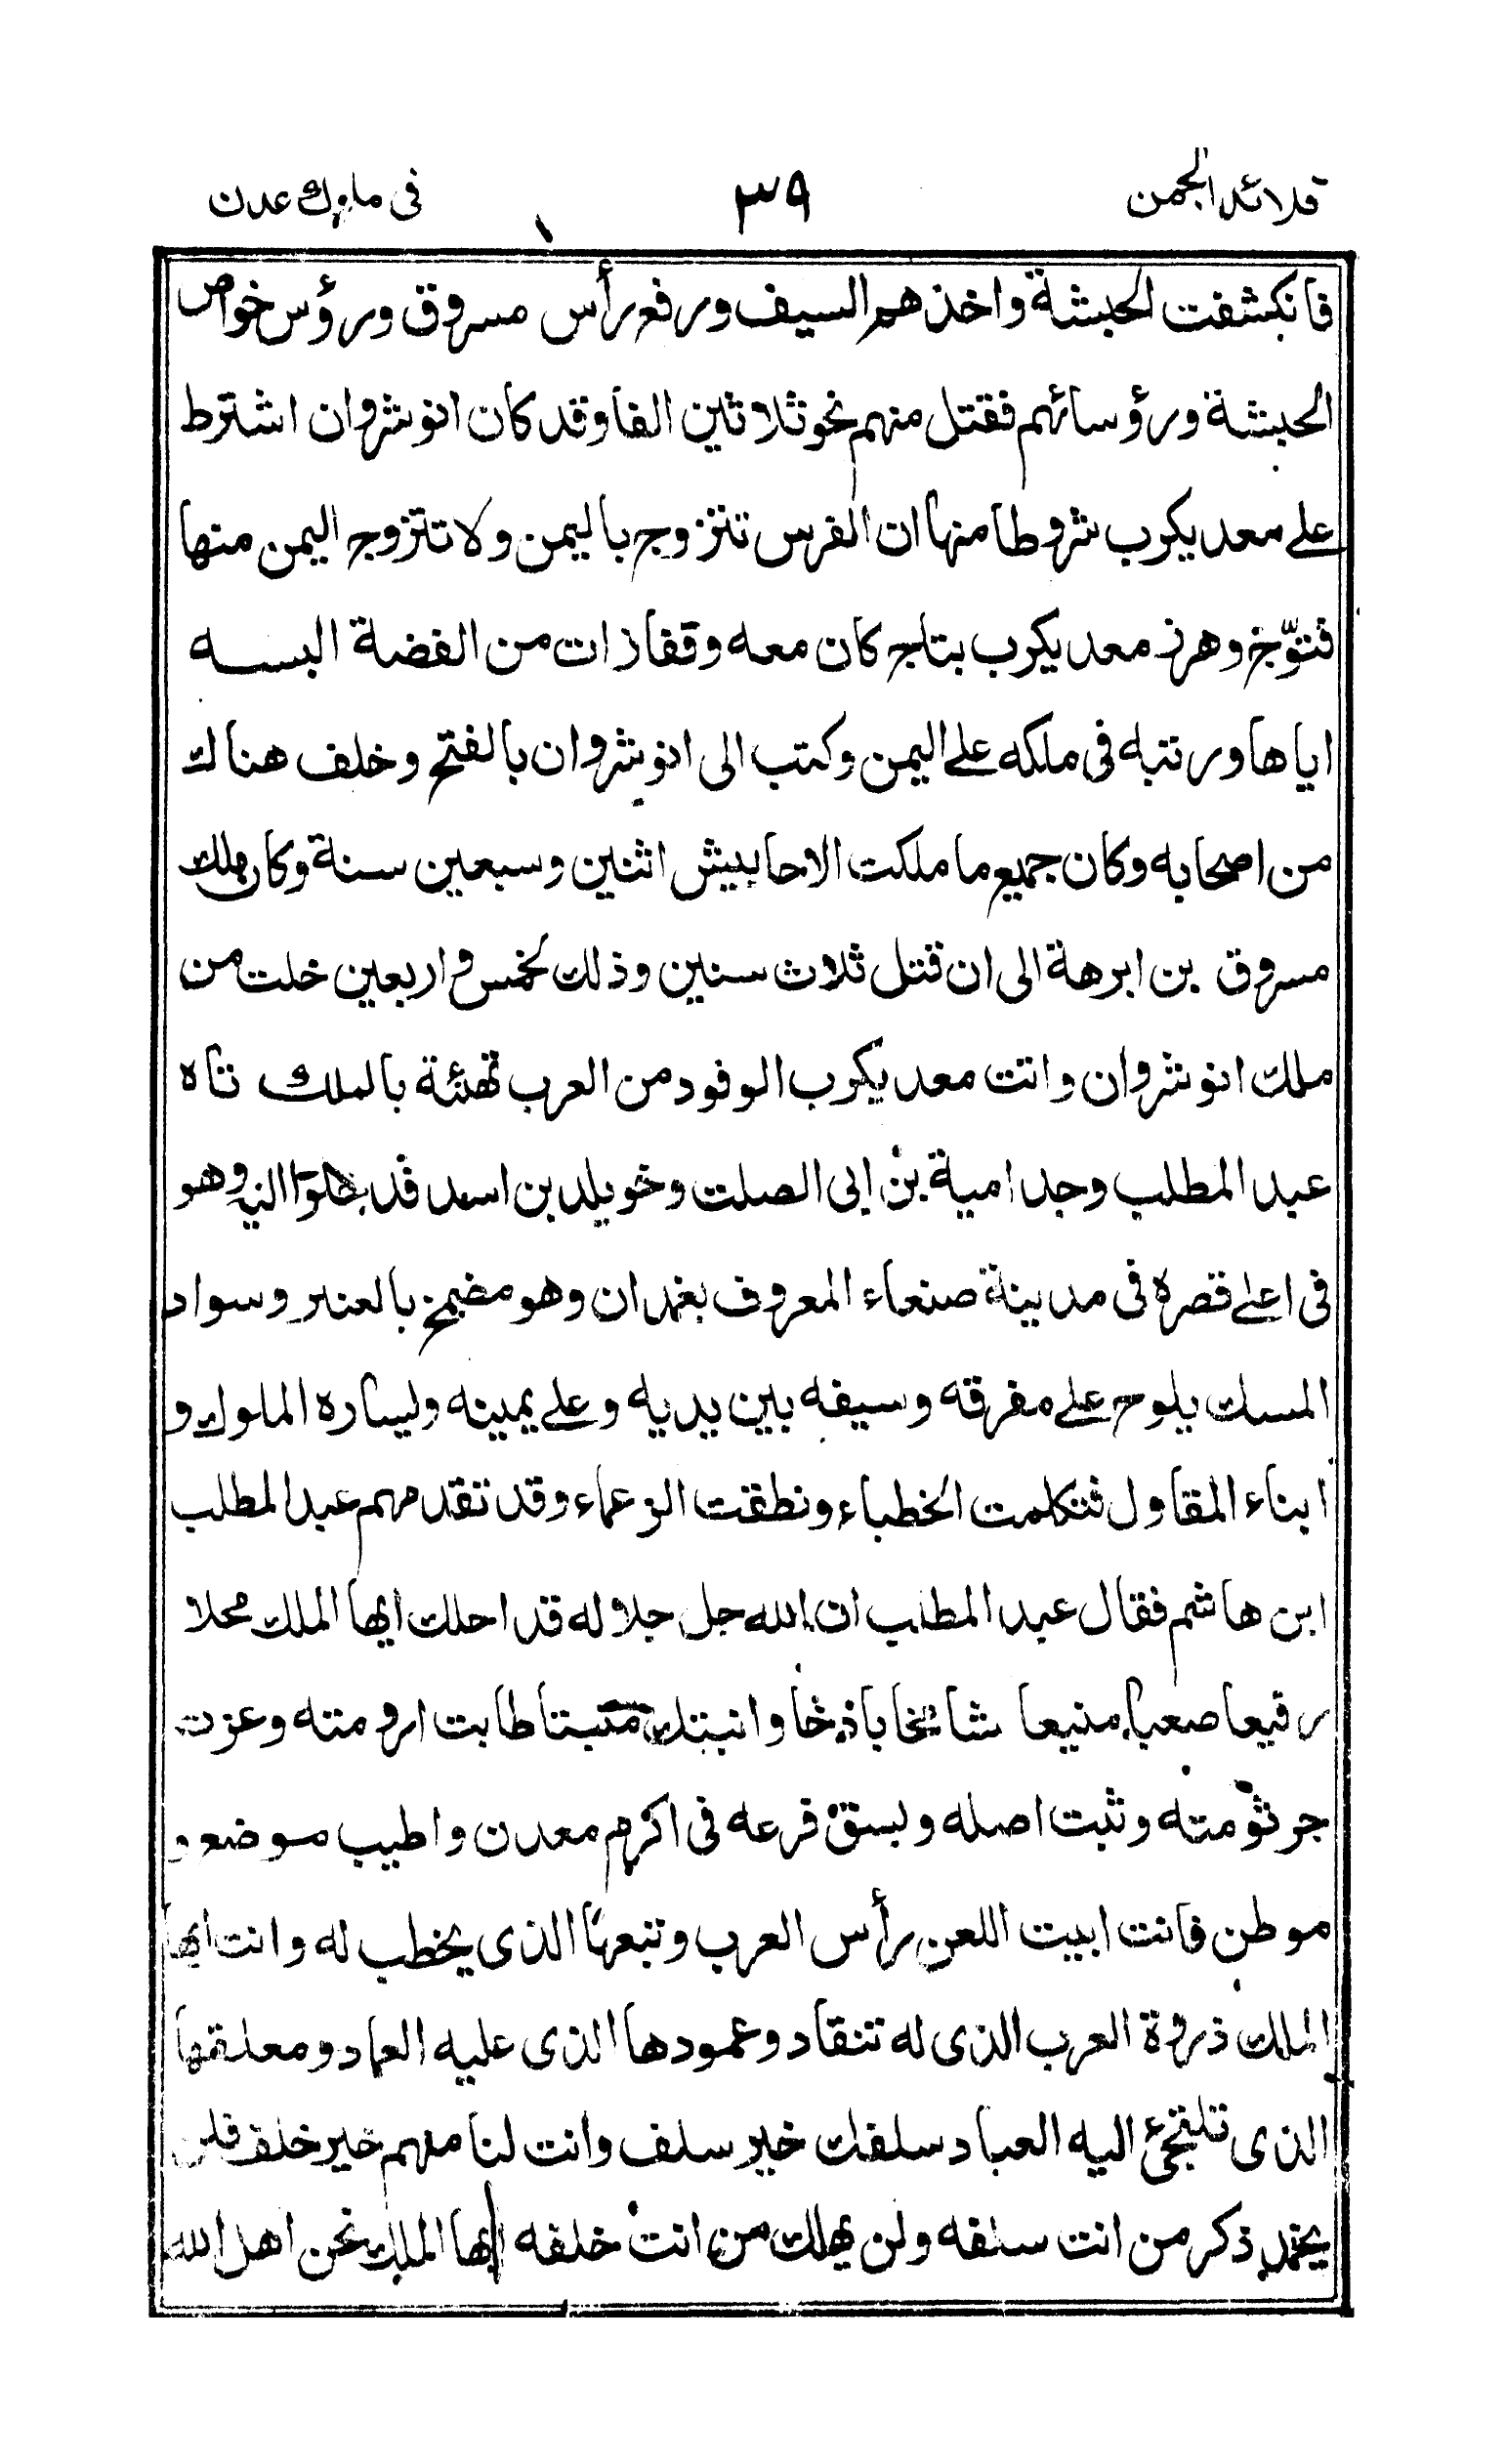 قلائد الجمن ٣٩ فى ملوك عدن
فانكشفت الحبشة واخذهم السيف ورفع رأس مسروق ورؤس خواص
الحبشة ورؤسائهم فقتل منهم نحو ثلاثين الفا وقد كان انوشروان اشترط
على معديكرب شروطا منها ان الفرس تتزوج باليمن ولا تتزوج اليمن منها
فتوّج وهرز معديكرب بتاج كان معه وقفازات من الفضة البسه
اياها ورتبه فى ملكه على اليمن وكتب الى انوشروان بالفتح وخلف هناك
من اصحابه وكان جميع ما ملكت الاحابيش اثنين وسبعين سنة وكان ملك
مسروق بن ابرهة الى ان قتل ثلاث سنين وذلك لخمس واربعين خلت من
ملك انوشروان واتت معديكرب الوفود من العرب تهنئة بالملك تاه
عبد المطلب وجد امية بن ابى الصلت وخويلد بن اسد قد اليه وهو
فى اعلى قصره فى مدينة صنعاء المعروف بغمدان وهو مضمخ بالعنبر وسواد
المسك يلوح على مفرقه وسيفه بين يديه وعلى يمينه ويساره الملوك و
ابناء المقاول فتكلمت الخطباء ونطقت الزعماء وقد تقدمهم عبد المطلب
ابن هاشم فقال عبد المطلب ان الله جل جلاله قد احلك ايها الملك محلا
رفيعا صعبا منيعا شامخا باذخا وانبتك منبتا طابت ارومته وعزت
جرثومته وثبت اصله وبسق فرعه فى اكرم معدن واطيب موضع و
موطن فانت ابيت اللعن رأس العرب وتبعها الذى يخطب له وانت ايها
الملك ذروة العرب الذى له تنقاد وعمودها الذى عليه العماد ومعلقها
الذى تلتجئ اليه العباد سلفك خير سلف وانت لنا منهم خير خلف فلن
يخمد ذكر من انت سلفه ولن يهلك من انت خلفه ايها الملك نحن اهل الله